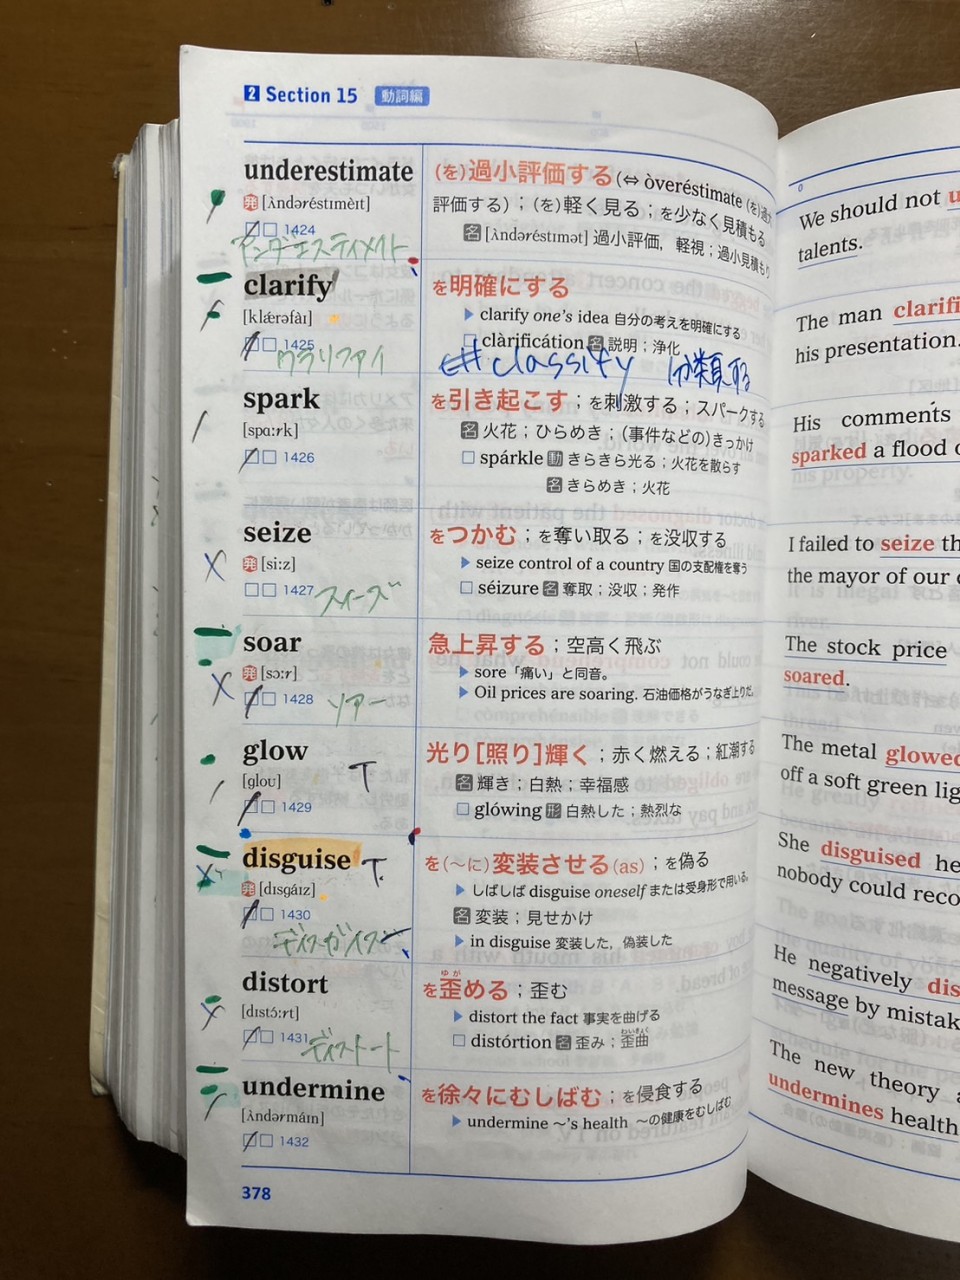 2 Section 15 動詞編
underestimate
発 [ʌ̀ndəréstɪmèɪt]
□□ 1424
アンダーエスティメイト
(を)過小評価する(⇔ òveréstimate (を)過大
評価する)；(を)軽く見る；を少なく見積もる
名 [ʌ̀ndəréstɪmət] 過小評価，軽視；過小見積もり
clarify
[klǽrəfàɪ]
□□ 1425
クラリファイ
を明確にする
▶ clarify one's idea 自分の考えを明確にする
□ clàrificátion 名 説明；浄化
classify 分類する
spark
[spɑːrk]
□□ 1426
を引き起こす；を刺激する；スパークする
名 火花；ひらめき；(事件などの)きっかけ
□ spárkle 動 きらきら光る；火花を散らす
名 きらめき；火花
seize
発 [siːz]
□□ 1427
スィーズ
をつかむ；を奪い取る；を没収する
▶ seize control of a country 国の支配権を奪う
□ séizure 名 奪取；没収；発作
soar
発 [sɔːr]
□□ 1428
ソアー
急上昇する；空高く飛ぶ
▶ sore「痛い」と同音。
▶ Oil prices are soaring. 石油価格がうなぎ上りだ。
glow
[gloʊ]
T
□□ 1429
光り[照り]輝く；赤く燃える；紅潮する
名 輝き；白熱；幸福感
□ glówing 形 白熱した；熱烈な
disguise T.
発 [dɪsgáɪz]
□□ 1430
ディスガイズ
を(～に)変装させる(as)；を偽る
▶ しばしば disguise oneself または受身形で用いる。
名 変装；見せかけ
▶ in disguise 変装した，偽装した
distort
[dɪstɔ́ːrt]
□□ 1431
ディストート
ゆが
を歪める；歪む
▶ distort the fact 事実を曲げる
わいきょく
□ distórtion 名 歪み；歪曲
undermine
[ʌ̀ndərmáɪn]
□□ 1432
を徐々にむしばむ；を侵食する
▶ undermine ～'s health ～の健康をむしばむ
378
We should not
talents.
The man
his presentation.
His comments
sparked a flood
I failed to seize
the mayor of our
The stock price
soared.
The metal glowed
off a soft green
She disguised
nobody could
He negatively
message by
The new theory
undermines health